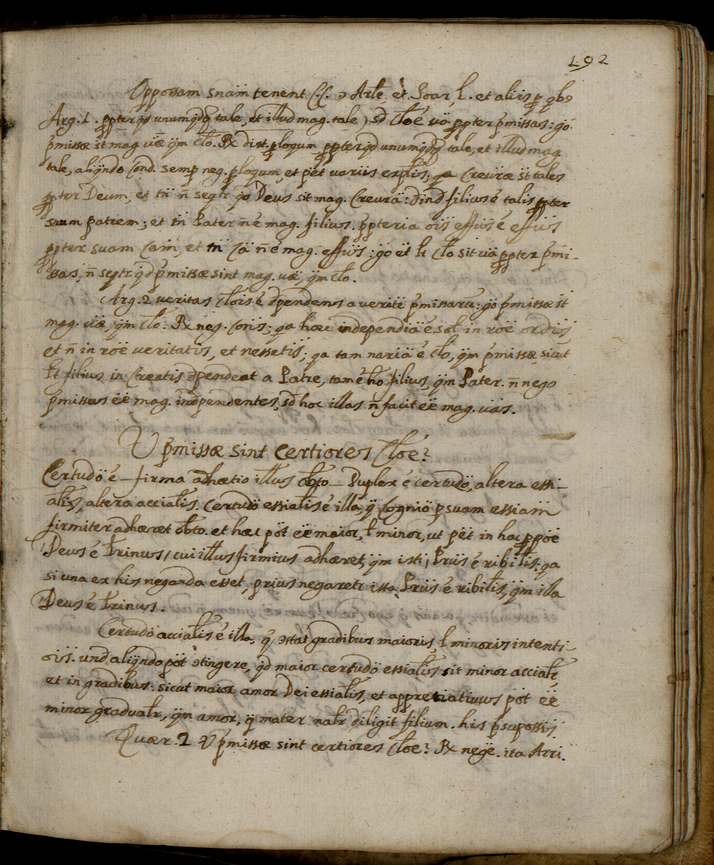 192
Oppositam snam tenent Cs. Arle et Soar, L. et aliis p ob
Arg. 1. ppter qd unumqdq tale, et illud mag. tale, sd Cloe uā ppter pmissas: go
pmissæ st mag. uæ qm Clo. Rx dist. plogum ppter qd unumqdq tale, et illud mag.
tale, aliqndo Cond. semp neg. plogum, et pet variis explis; Creuræ st tales
ppter Deum, et tn ñ seqtr go Deus sit mag. Creura: dind filius é talis ppter
suum patrem, et tn Pater ñ é mag. filius. ppterea ois effus é effus
ppter suam Cām, et tn Cā ñ é mag. effus: go et st Clo sit uā ppter pmi-
ssas, ñ seqtr qd pmissæ sint mag. uæ, qm Clo.
Arg. 2 veritas Clois é dpendens a verite pmissaru: go pmissæ st
mag. uæ, qm Clo. Rx neg. Conis; qa hæc independia é sol in röe ordiis
et ñ in röe veritatis, et nessetis; qa tam naria é Clo, qm pmissæ sicut
st filius in Creatis dpendeat a Patre, tam é ho filius, qm Pater. ñ nego
pmissas éé mag. independentes, sd hoc illas ñ facit éé mag. uas.
V pmissæ sint certiores Cloe?
Certudo é firma adhætio illius obto Duplex é certudo, altera essi-
alis, altera accialis. Certudo essialis é illa, q Cognio p suam essiam
firmiter adhæret obto. et hæc pöt éé maior, l minor, ut pët in hac ppöe
Deus é Trinus, cui illus firmius adhæret, qm isti, Prius é ribilis: qa
si una ex his neganda esset, prius negaretr ista Prius é ribilis, qm illa
Deus é Trinus.
Certudo accialis é illa, q ostat gradibus maioris l minoris intenti-
öis. und aliqndo pöt otingere, qd maior certudo essialis sit minor accialr,
et in gradibus. sicut maior amor Dei essialis, et appretiativus pöt éé
minor gradualr, qm amor, q mater nalr diligit filium. his psupossis
Quær. 2 V pmissæ sint certiores Cloe? Rx nege. ita Arri.